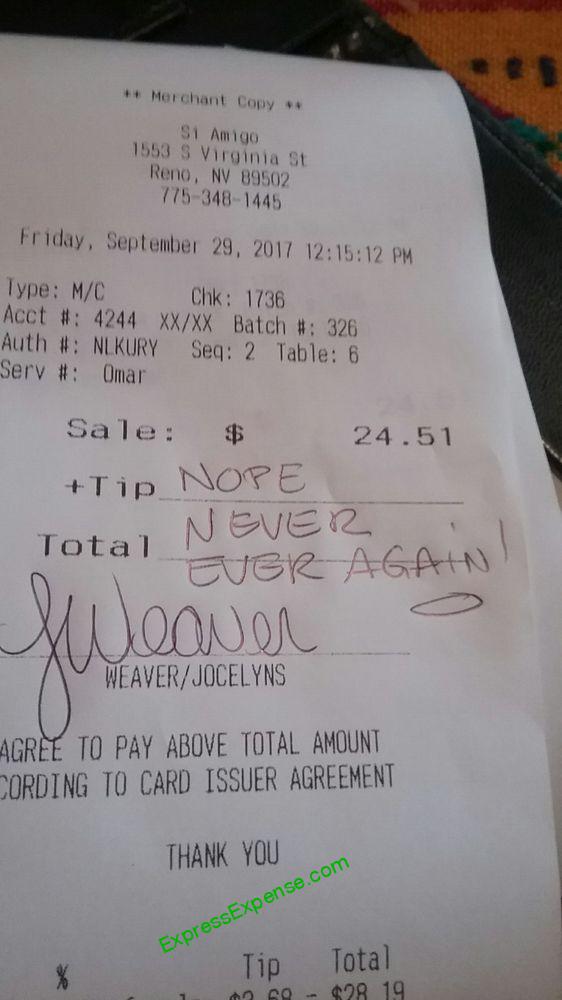 ** Merchant Copy **
Si Amigo
1553 S Virginia St
Reno, NV 89502
775-348-1445
Friday, September 29, 2017 12:15:12 PM
Type: M/C Chk: 1736
Acct #: 4244 XX/XX Batch #: 326
Auth #: NLKURY Seq: 2 Table: 6
Serv #: Omar
Sale: $ 24.51
+Tip NOPE
Total NEVER
EVER AGAIN!
JWeaver
WEAVER/JOCELYNS
AGREE TO PAY ABOVE TOTAL AMOUNT
CORDING TO CARD ISSUER AGREEMENT
THANK YOU
ExpressExpense.com
% Tip Total
$2.68 - $28.19